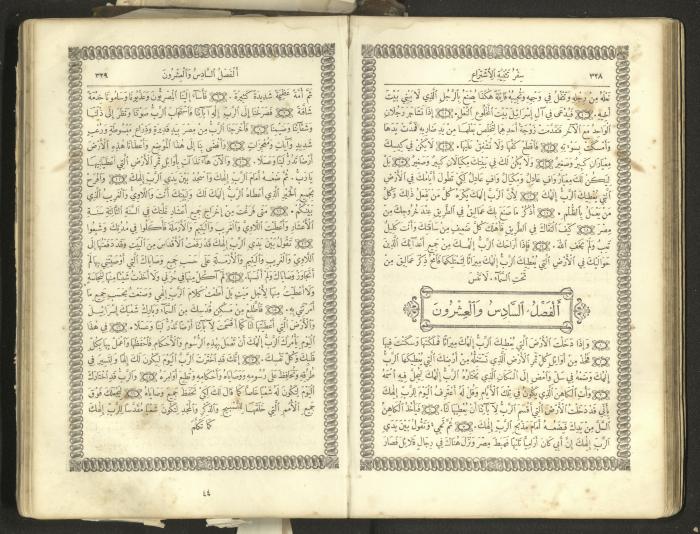 سِفْرُ تَثْنِيَةِ ٱلِٱشْتِرَاعِ ٣٢٨
نَعْلَهُ مِنْ رِجْلِهِ وَتَتْفُلُ فِي وَجْهِهِ وَتُجِيبُهُ قَائِلَةً هٰكَذَا يُصْنَعُ بِٱلرَّجُلِ ٱلَّذِي لَا يَبْنِي بَيْتَ
أَخِيهِ. فَيُدْعَى فِي آلِ إِسْرَائِيلَ بَيْتَ ٱلْمَخْلُوعِ ٱلنَّعْلِ. إِذَا تَشَاجَرَ رَجُلَانِ
ٱلْوَاحِدُ مَعَ ٱلْآخَرِ فَتَقَدَّمَتْ زَوْجَةُ أَحَدِهِمَا لِتُخَلِّصَ بَعْلَهَا مِنْ يَدِ ضَارِبِهِ فَمَدَّتْ يَدَهَا
وَأَمْسَكَتْ بِسَوْءَتِهِ فَٱقْطَعْ كَفَّهَا وَلَا تُشْفِقْ عَلَيْهَا. لَا يَكُنْ فِي كِيسِكَ
مِعْيَارَانِ كَبِيرٌ وَصَغِيرٌ وَلَا يَكُنْ لَكَ فِي بَيْتِكَ مِكْيَالَانِ كَبِيرٌ وَصَغِيرٌ بَلْ
لِيَكُنْ لَكَ مِعْيَارٌ وَافٍ عَادِلٌ وَمِكْيَالٌ وَافٍ عَادِلٌ لِكَيْ تَطُولَ أَيَّامُكَ فِي ٱلْأَرْضِ
ٱلَّتِي يُعْطِيكَ ٱلرَّبُّ إِلٰهُكَ لِأَنَّ ٱلرَّبَّ إِلٰهَكَ يَكْرَهُ كُلَّ مَنْ يَفْعَلُ ذٰلِكَ وَكُلَّ
مَنْ يَعْمَلُ بِٱلظُّلْمِ. أُذْكُرْ مَا صَنَعَ بِكَ عَمَالِيقُ فِي ٱلطَّرِيقِ عِنْدَ خُرُوجِكَ مِنْ
مِصْرَ كَيْفَ ٱلْتَقَاكَ فِي ٱلطَّرِيقِ فَأَهْلَكَ كُلَّ ضَعِيفٍ مِنْ سَاقَتِكَ وَأَنْتَ كَالٌّ
تَعِبٌ وَلَمْ يَخَفِ ٱللهَ. فَإِذَا أَرَاحَكَ ٱلرَّبُّ إِلٰهُكَ مِنْ جَمِيعِ أَعْدَائِكَ ٱلَّذِينَ
حَوَالَيْكَ فِي ٱلْأَرْضِ ٱلَّتِي يُعْطِيكَ ٱلرَّبُّ إِلٰهُكَ مِيرَاثًا لِتَمْلِكَهَا فَٱمْحُ ذِكْرَ عَمَالِيقَ مِنْ
تَحْتِ ٱلسَّمَاءِ. لَا تَنْسَ
أَلْفَصْلُ ٱلسَّادِسُ وَٱلْعِشْرُونَ
وَإِذَا دَخَلْتَ ٱلْأَرْضَ ٱلَّتِي يُعْطِيكَ ٱلرَّبُّ إِلٰهُكَ مِيرَاثًا فَمَلَكْتَهَا وَسَكَنْتَ فِيهَا
فَخُذْ مِنْ أَوَائِلِ كُلِّ ثَمَرِ ٱلْأَرْضِ ٱلَّذِي تَسْتَغِلُّهُ مِنْ أَرْضِكَ ٱلَّتِي يُعْطِيكَهَا ٱلرَّبُّ
إِلٰهُكَ وَضَعْهُ فِي سَلٍّ وَٱمْضِ إِلَى ٱلْمَكَانِ ٱلَّذِي يَخْتَارُهُ ٱلرَّبُّ إِلٰهُكَ لِيُحِلَّ فِيهِ ٱسْمَهُ
وَأْتِ ٱلْكَاهِنَ ٱلَّذِي يَكُونُ فِي تِلْكَ ٱلْأَيَّامِ وَقُلْ لَهُ أَعْتَرِفُ ٱلْيَوْمَ لِلرَّبِّ إِلٰهِكَ
بِأَنِّي قَدْ دَخَلْتُ ٱلْأَرْضَ ٱلَّتِي أَقْسَمَ ٱلرَّبُّ لِآبَائِنَا أَنْ يُعْطِيَهَا لَنَا. فَيَأْخُذُ ٱلْكَاهِنُ
ٱلسَّلَّ مِنْ يَدِكَ وَيَضَعُهُ أَمَامَ مَذْبَحِ ٱلرَّبِّ إِلٰهِكَ ثُمَّ تُجِيبُ وَتَقُولُ بَيْنَ يَدَيِ
ٱلرَّبِّ إِلٰهِكَ إِنَّ أَبِي كَانَ أَرَامِيًّا تَائِهًا فَهَبَطَ مِصْرَ وَنَزَلَ هُنَاكَ فِي رِجَالٍ قَلَائِلَ فَصَارَ
أَلْفَصْلُ ٱلسَّادِسُ وَٱلْعِشْرُونَ ٣٢٩
ثَمَّ أُمَّةً عَظِيمَةً شَدِيدَةً كَثِيرَةً. فَأَسَاءَ إِلَيْنَا ٱلْمِصْرِيُّونَ وَعَذَّبُونَا وَسَامُونَا خِدْمَةً
شَاقَّةً فَصَرَخْنَا إِلَى ٱلرَّبِّ إِلٰهِ آبَائِنَا فَٱسْتَجَابَ ٱلرَّبُّ صَوْتَنَا وَنَظَرَ إِلَى ذُلِّنَا
وَشَقَائِنَا وَضِيمِنَا فَأَخْرَجَنَا ٱلرَّبُّ مِنْ مِصْرَ بِيَدٍ قَدِيرَةٍ وَذِرَاعٍ مَبْسُوطَةٍ وَذُعْرٍ
شَدِيدٍ وَآيَاتٍ وَمُعْجِزَاتٍ وَأَفْضَى بِنَا إِلَى هٰذَا ٱلْمَوْضِعِ وَأَعْطَانَا هٰذِهِ ٱلْأَرْضَ
أَرْضًا تَدُرُّ لَبَنًا وَعَسَلًا. وَٱلْآنَ هَاءَنَذَا آتٍ بِأَوَائِلِ ثَمَرِ ٱلْأَرْضِ ٱلَّتِي أَعْطَيْتَنِيهَا
يَا رَبُّ. ثُمَّ ضَعْهُ أَمَامَ ٱلرَّبِّ إِلٰهِكَ وَٱسْجُدْ بَيْنَ يَدَيِ ٱلرَّبِّ إِلٰهِكَ وَٱفْرَحْ
بِجَمِيعِ ٱلْخَيْرِ ٱلَّذِي أَعْطَاهُ ٱلرَّبُّ إِلٰهُكَ لَكَ وَلِبَيْتِكَ أَنْتَ وَٱللَّاوِيُّ وَٱلْغَرِيبُ ٱلَّذِي
بَيْنَكُمْ. مَتَى فَرَغْتَ مِنْ إِخْرَاجِ جَمِيعِ أَعْشَارِ غَلَّتِكَ فِي ٱلسَّنَةِ ٱلثَّالِثَةِ سَنَةِ
ٱلْأَعْشَارِ وَأَعْطَيْتَ ٱللَّاوِيَّ وَٱلْغَرِيبَ وَٱلْيَتِيمَ وَٱلْأَرْمَلَةَ فَأَكَلُوا فِي مُدُنِكَ وَشَبِعُوا
تَقُولُ بَيْنَ يَدَيِ ٱلرَّبِّ إِلٰهِكَ قَدْ رَفَعْتُ ٱلْأَقْدَاسَ مِنَ ٱلْبَيْتِ وَقَدْ دَفَعْتُهَا إِلَى
ٱللَّاوِيِّ وَٱلْغَرِيبِ وَٱلْيَتِيمِ وَٱلْأَرْمَلَةِ عَلَى حَسَبِ جَمِيعِ وَصَايَاكَ ٱلَّتِي أَوْصَيْتَنِي بِهَا لَمْ
أَتَجَاوَزْ وَصَايَاكَ وَلَمْ أَنْسَهَا. لَمْ آكُلْ مِنْهَا فِي حُزْنِي وَلَا أَخَذْتُ شَيْئًا مِنْهَا لِنَجَاسَةٍ
وَلَا أَعْطَيْتُ مِنْهَا لِأَجْلِ مَيْتٍ بَلْ أَطَعْتُ كَلَامَ ٱلرَّبِّ إِلٰهِي وَصَنَعْتُ بِحَسَبِ جَمِيعِ مَا
أَمَرْتَنِي بِهِ. فَٱطَّلِعْ مِنْ مَسْكِنِ قُدْسِكَ مِنَ ٱلسَّمَاءِ وَبَارِكْ شَعْبَكَ إِسْرَائِيلَ
وَٱلْأَرْضَ ٱلَّتِي أَعْطَيْتَهَا لَنَا كَمَا أَقْسَمْتَ لِآبَائِنَا أَرْضًا تَدُرُّ لَبَنًا وَعَسَلًا. فِي هٰذَا
ٱلْيَوْمِ يَأْمُرُكَ ٱلرَّبُّ إِلٰهُكَ أَنْ تَعْمَلَ بِهٰذِهِ ٱلرُّسُومِ وَٱلْأَحْكَامِ فَٱحْفَظْهَا وَٱعْمَلْ بِهَا بِكُلِّ
قَلْبِكَ وَكُلِّ نَفْسِكَ. إِنَّكَ قَدِ ٱخْتَرْتَ ٱلرَّبَّ ٱلْيَوْمَ لِيَكُونَ لَكَ إِلٰهًا وَلِتَسِيرَ فِي
طُرُقِهِ وَتُحَافِظَ عَلَى رُسُومِهِ وَوَصَايَاهُ وَأَحْكَامِهِ وَتُطِيعَ أَوَامِرَهُ وَٱلرَّبُّ قَدِ ٱخْتَارَكَ
ٱلْيَوْمَ لِتَكُونَ لَهُ شَعْبًا خَاصًّا كَمَا قَالَ لَكَ لِكَيْ تَحْفَظَ جَمِيعَ وَصَايَاهُ لِيَجْعَلَكَ فَوْقَ
جَمِيعِ ٱلْأُمَمِ ٱلَّتِي خَلَقَهَا لِلتَّسْبِيحِ وَٱلذِّكْرِ وَٱلْمَجْدِ لِتَكُونَ شَعْبًا مُقَدَّسًا لِلرَّبِّ إِلٰهِكَ
كَمَا تَكَلَّمَ
٤٤